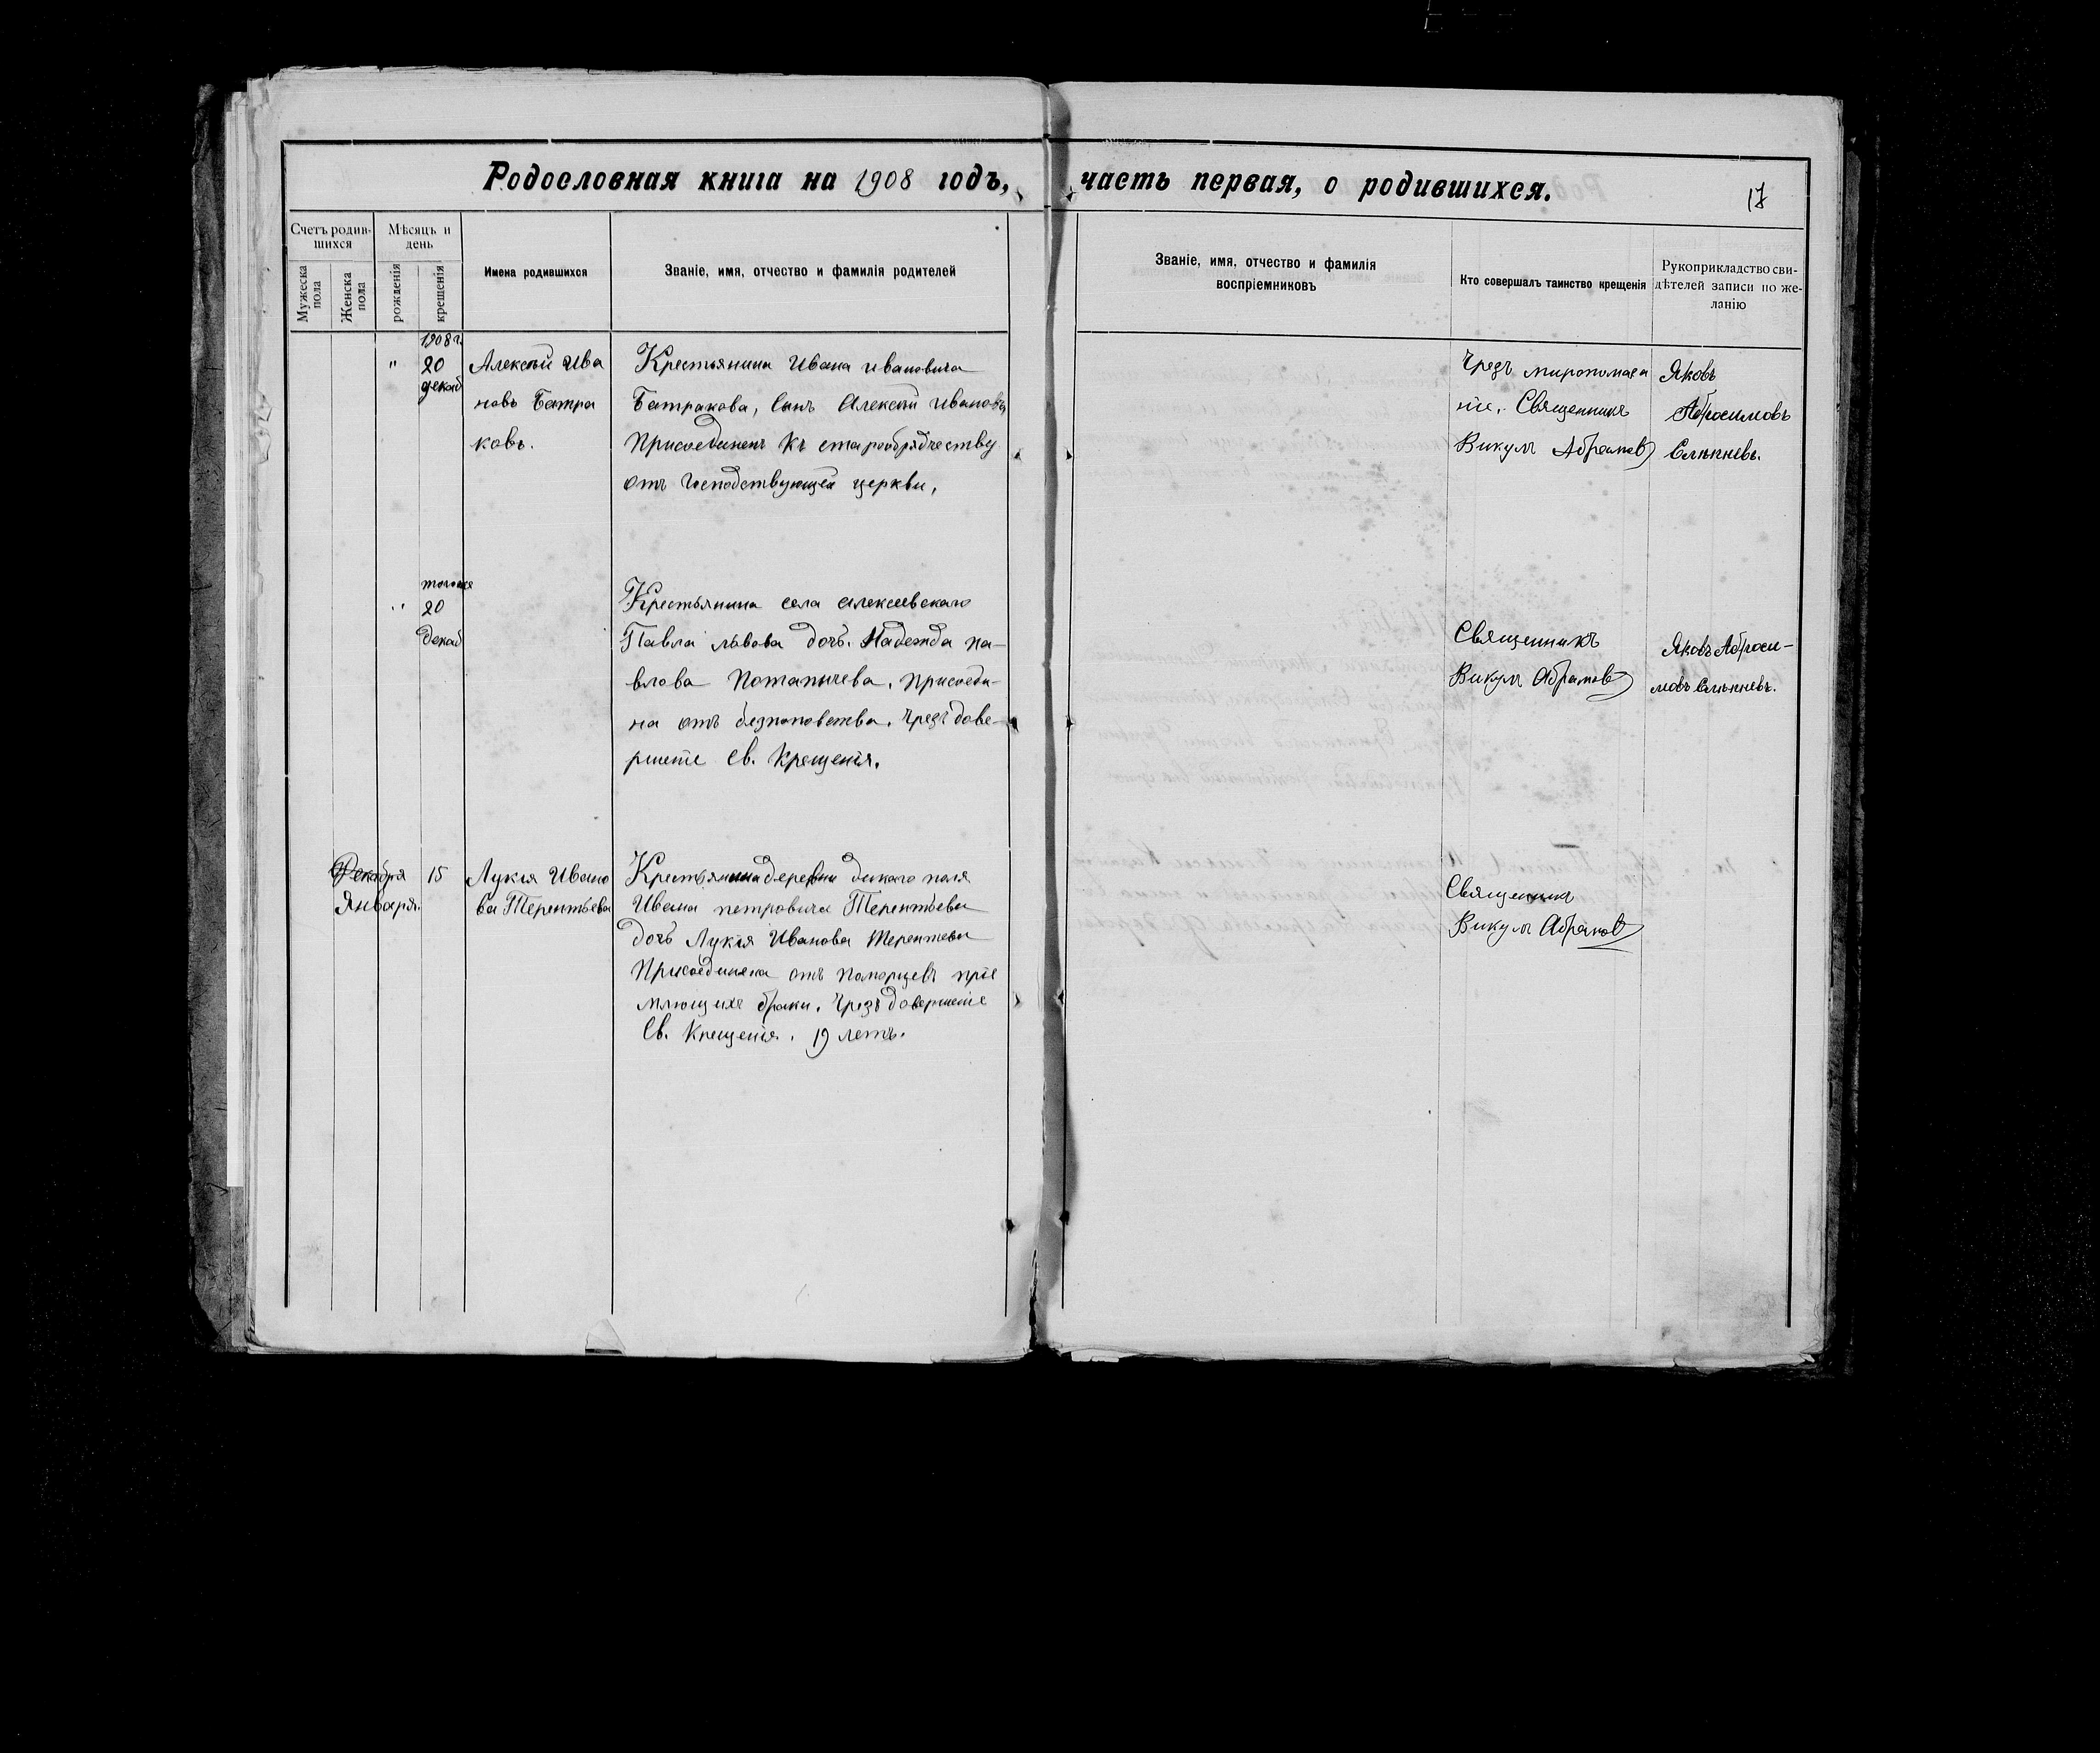 Родословная книга на 1908 годъ, часть первая, о родившихся.
17
Счетъ родив-
шихся
Мужеска
пола
Женска
пола
Мѣсяцъ и
день
рожденія
крещенія
Имена родившихся
Званіе, имя, отчество и фамилія родителей
Званіе, имя, отчество и фамилія
воспріемниковъ
Кто совершалъ таинство крещенія
Рукоприкладство сви-
дѣтелей записи по же-
ланію
1908 г.
" 20
декаб
Алексѣй Ива
новъ Батра
ковъ.
Крестьянина Ивана ивановича
Батракова, Сынъ Алексѣй ивановъ
Присоединенъ Къ старообрядчеству
отъ Господствующей церкви,
Чрезъ миропомаза
ніе, Священникъ
Викулъ Абрамов
Яковъ
Абросимовъ
Слѣпневъ.
тогоже
" 20
декаб
Крестьянина села алексеевскаго
Павла львова дочь. Надежда па-
влова Потапычева, присоеди-
на отъ безпоповства, чрезъ дове-
ршеніе Св. Крещенія.
Священникъ
Викулъ Абрамов
Яковъ Аброси-
мовъ Слѣпневъ.
Декабря 15
Января.
Лукія Ивано
ва Терентьева
Крестьянина деревни дикаго поля
Ивана петровича Терентьева
дочь Лукія Иванова Терентева
Присоединена отъ поморцевъ пріе
млющихъ браки, Чрезъ довершеніе
Св. Крещенія. 19 летъ.
Священникъ
Викулъ Абрамов